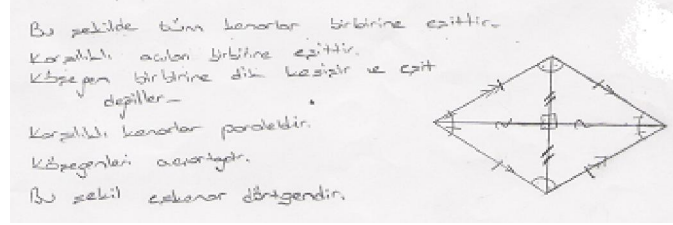 Bu şekilde tüm kenarlar birbirine eşittir.
Karşılıklı açıları birbirine eşittir.
Köşegen birbirine dik kesişir ve eşit
değiller.
Karşılıklı kenarlar paraleldir.
Köşegenleri açıortaydır.
Bu şekil eşkenar dörtgendir.